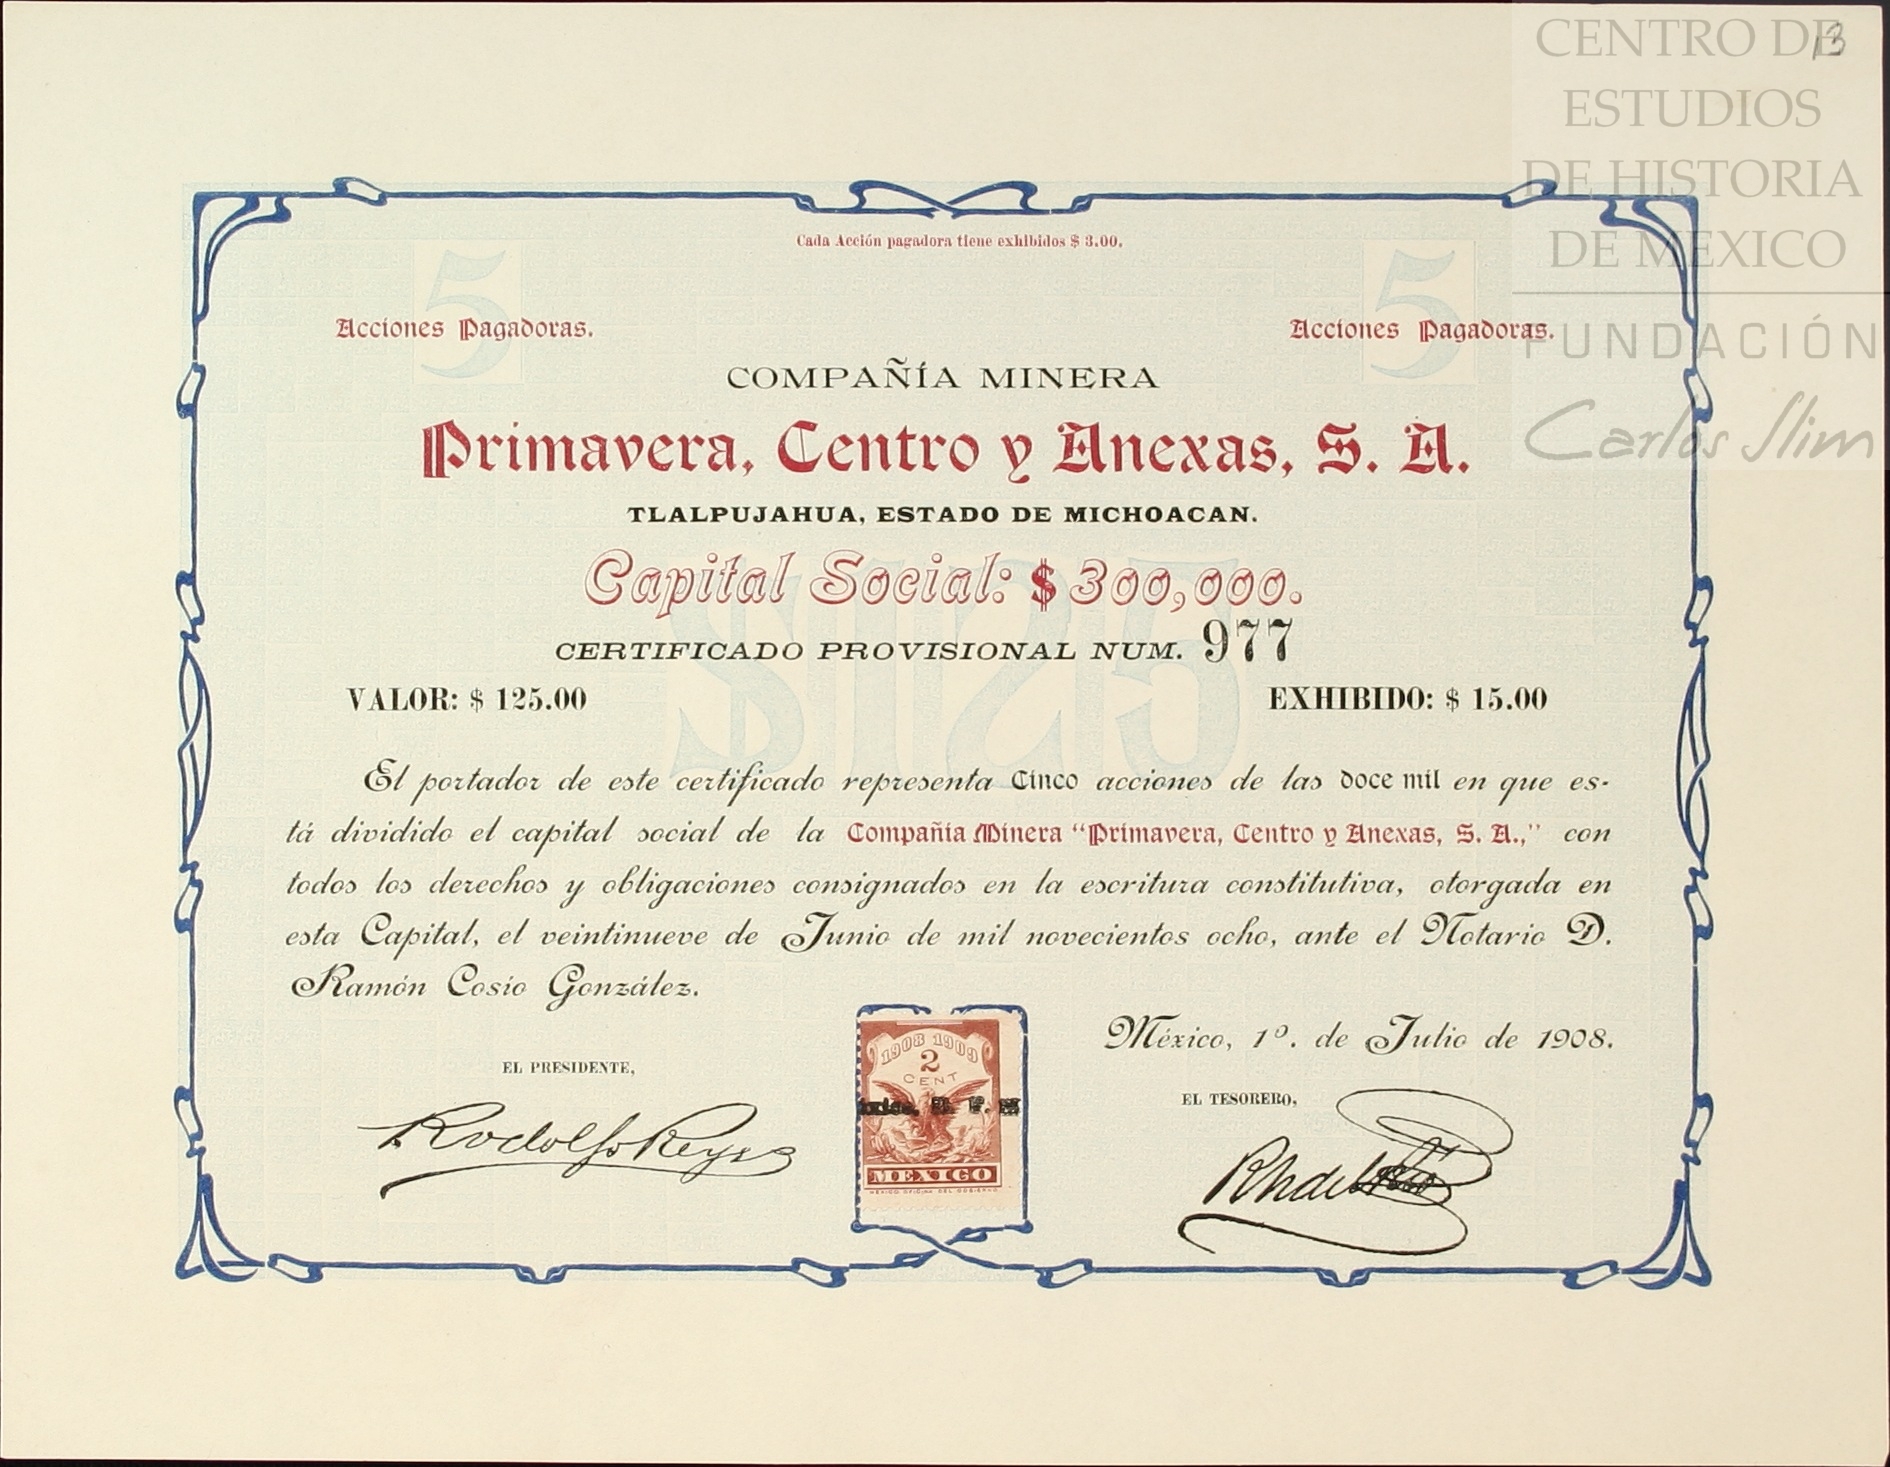 CENTRO DE
ESTUDIOS
DE HISTORIA
DE MEXICO
FUNDACIÓN
Carlos Slim
13
Cada Acción pagadora tiene exhibidos $ 3.00.
5
5
Acciones Pagadoras.
Acciones Pagadoras.
COMPAÑÍA MINERA
Primavera, Centro y Anexas, S. A.
TLALPUJAHUA, ESTADO DE MICHOACAN.
Capital Social: $ 300,000.
$125
CERTIFICADO PROVISIONAL NUM. 977
VALOR: $ 125.00
EXHIBIDO: $ 15.00
El portador de este certificado representa cinco acciones de las doce mil en que es-
tá dividido el capital social de la Compañía Minera "Primavera, Centro y Anexas, S. A.," con
todos los derechos y obligaciones consignados en la escritura constitutiva, otorgada en
esta Capital, el veintinueve de Junio de mil novecientos ocho, ante el Notario D.
Ramón Cosío González.
México, 1º. de Julio de 1908.
EL PRESIDENTE,
Rodolfo Reyes
1908 1909
2
CENT
MEXICO
EL TESORERO,